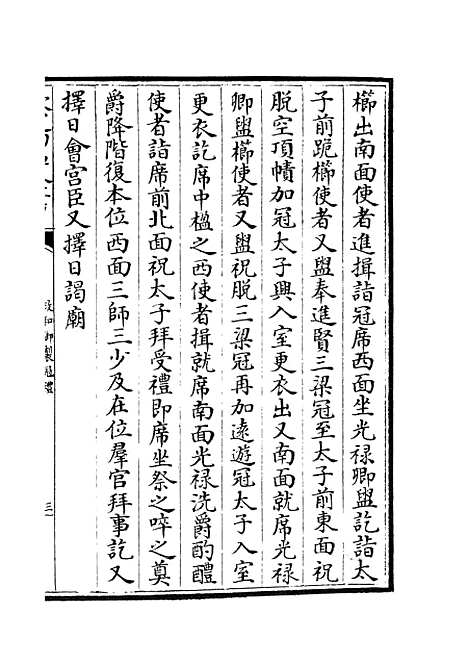 櫛出南面使者進揖詣冠席西面坐光禄卿盥訖詣太
子前跪櫛使者又盥奉進賢三梁冠至太子前東面祝
脫空項幘加冠太子興入室更衣出又南面就席光禄
卿盥櫛使者又盥祝脫三梁冠再加遠遊冠太子入室
更衣訖席中楹之西使者揖就席南面光禄洗爵酌醴
使者詣席前北面祝太子拜受禮即席坐祭之啐之奠
爵降階復本位西面三師三少及在位羣官拜事訖又
擇日會宫臣又擇日謁廟
政和御製冠禮
三